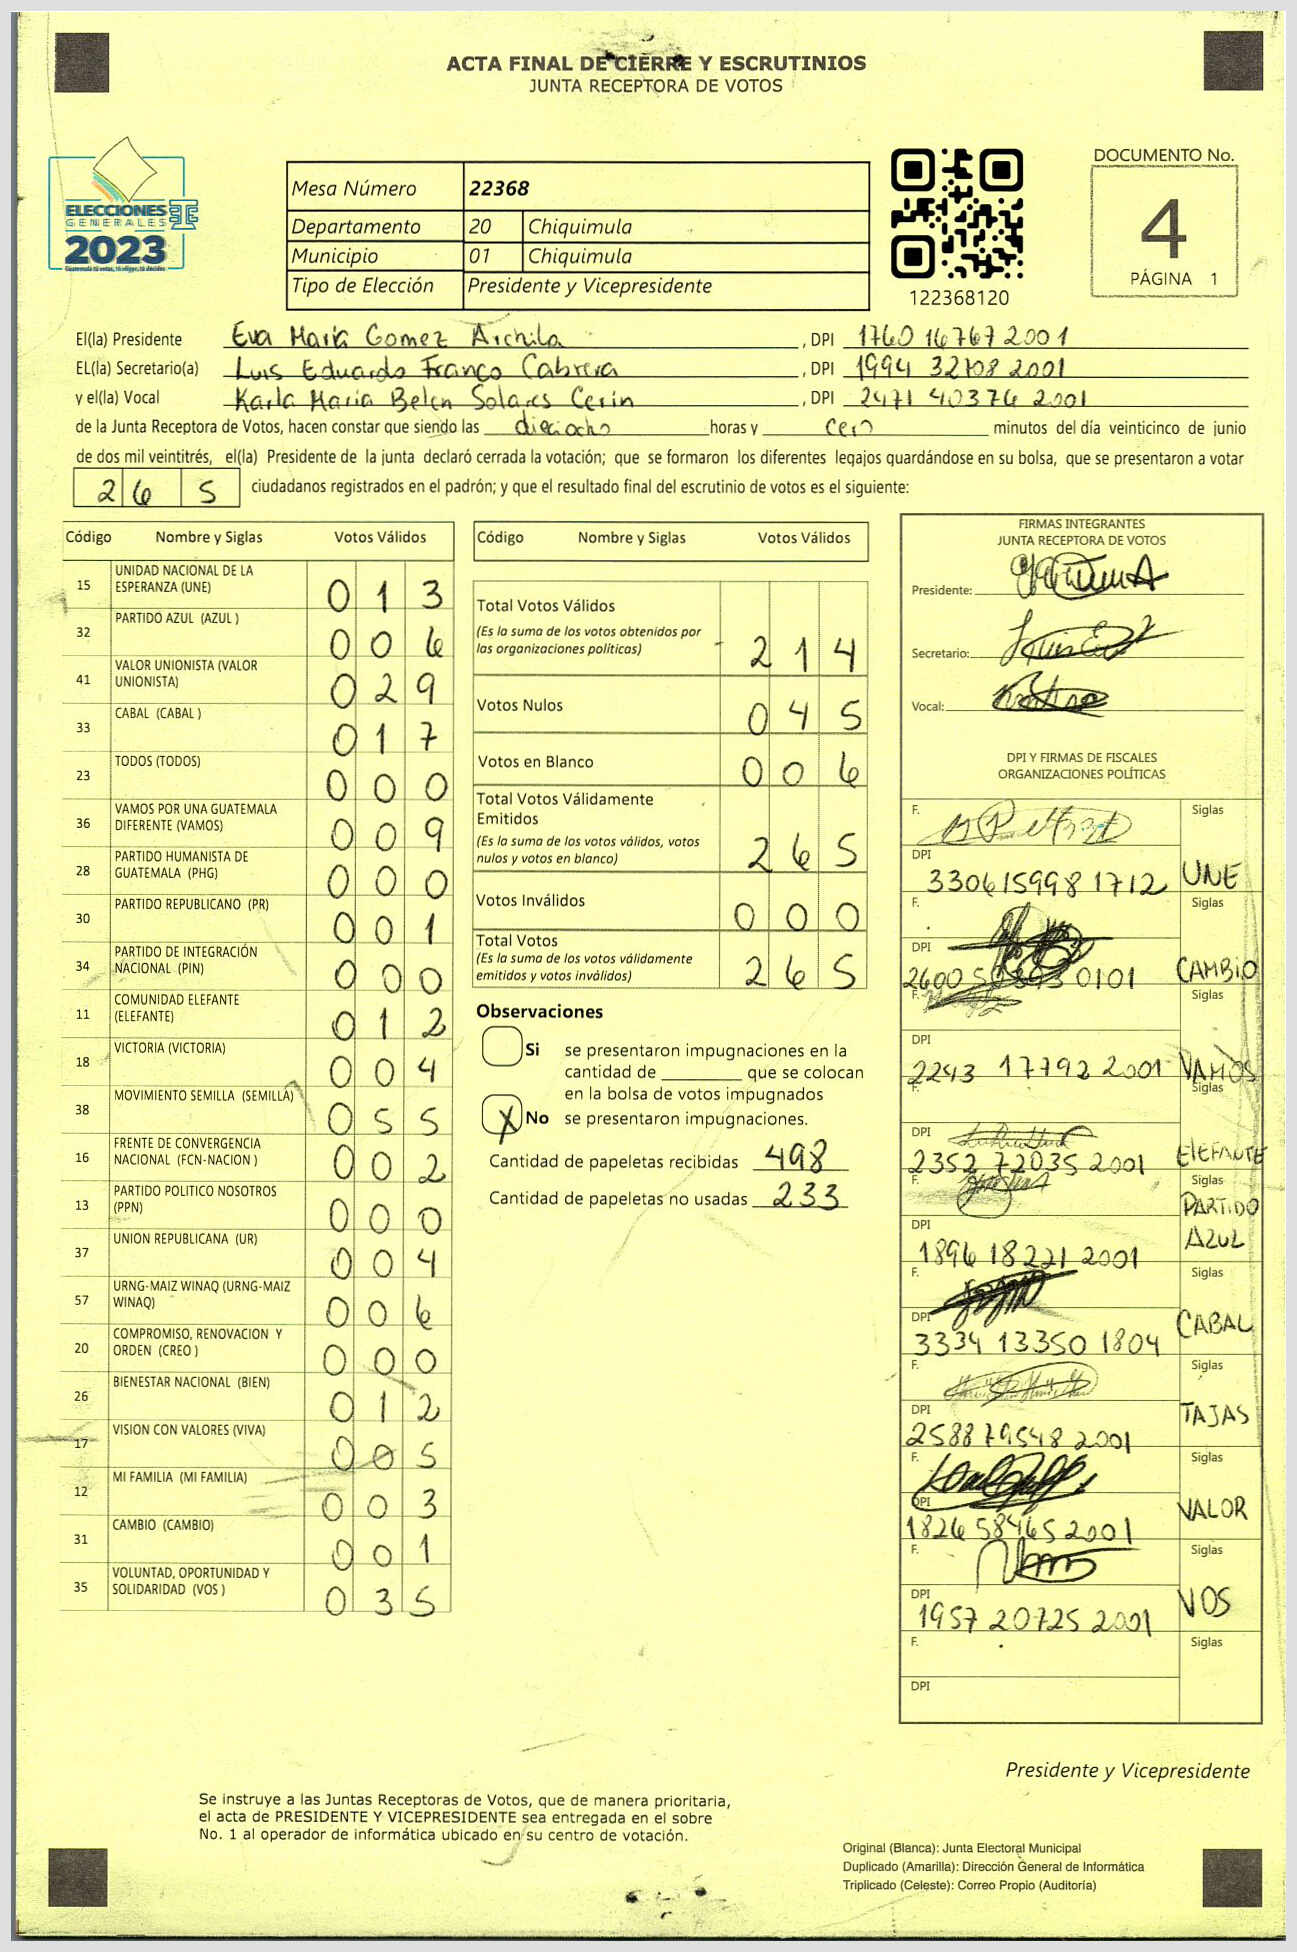 ACTA FINAL DE CIERRE Y ESCRUTINIOS
JUNTA RECEPTORA DE VOTOS
ELECCIONES
GENERALES
2023
Mesa Número 22368
Departamento 20 Chiquimula
Municipio 01 Chiquimula
Tipo de Elección Presidente y Vicepresidente
122368120
DOCUMENTO No.
4
PÁGINA 1
El(la) Presidente Eva María Gomez Archila , DPI 1760 16767 2001
EL(la) Secretario(a) Luis Eduardo Franco Cabrera , DPI 1994 32108 2001
y el(la) Vocal Karla Maria Belen Solares Cerin , DPI 2471 40376 2001
de la Junta Receptora de Votos, hacen constar que siendo las dieciocho horas y cero minutos del día veinticinco de junio
de dos mil veintitrés, el(la) Presidente de la junta declaró cerrada la votación; que se formaron los diferentes legajos guardándose en su bolsa, que se presentaron a votar
265 ciudadanos registrados en el padrón; y que el resultado final del escrutinio de votos es el siguiente:
Código Nombre y Siglas Votos Válidos
15 UNIDAD NACIONAL DE LA ESPERANZA (UNE) 013
32 PARTIDO AZUL (AZUL ) 006
41 VALOR UNIONISTA (VALOR UNIONISTA) 029
33 CABAL (CABAL ) 017
23 TODOS (TODOS) 000
36 VAMOS POR UNA GUATEMALA DIFERENTE (VAMOS) 009
28 PARTIDO HUMANISTA DE GUATEMALA (PHG) 000
30 PARTIDO REPUBLICANO (PR) 001
34 PARTIDO DE INTEGRACIÓN NACIONAL (PIN) 000
11 COMUNIDAD ELEFANTE (ELEFANTE) 012
18 VICTORIA (VICTORIA) 004
38 MOVIMIENTO SEMILLA (SEMILLA) 055
16 FRENTE DE CONVERGENCIA NACIONAL (FCN-NACION ) 002
13 PARTIDO POLITICO NOSOTROS (PPN) 000
37 UNION REPUBLICANA (UR) 004
57 URNG-MAIZ WINAQ (URNG-MAIZ WINAQ) 006
20 COMPROMISO, RENOVACION Y ORDEN (CREO ) 000
26 BIENESTAR NACIONAL (BIEN) 012
17 VISION CON VALORES (VIVA) 005
12 MI FAMILIA (MI FAMILIA) 003
31 CAMBIO (CAMBIO) 001
35 VOLUNTAD, OPORTUNIDAD Y SOLIDARIDAD (VOS ) 035
Código Nombre y Siglas Votos Válidos
Total Votos Válidos
(Es la suma de los votos obtenidos por
las organizaciones políticas) 214
Votos Nulos 045
Votos en Blanco 006
Total Votos Válidamente
Emitidos
(Es la suma de los votos válidos, votos
nulos y votos en blanco) 265
Votos Inválidos 000
Total Votos
(Es la suma de los votos válidamente
emitidos y votos inválidos) 265
Observaciones
Si se presentaron impugnaciones en la
cantidad de ________ que se colocan
en la bolsa de votos impugnados
X No se presentaron impugnaciones.
Cantidad de papeletas recibidas 498
Cantidad de papeletas no usadas 233
FIRMAS INTEGRANTES
JUNTA RECEPTORA DE VOTOS
Presidente:
Secretario:
Vocal:
DPI Y FIRMAS DE FISCALES
ORGANIZACIONES POLÍTICAS
F. Siglas
DPI 330615998 1712 UNE
F. Siglas
DPI 2600 0101 CAMBIO
F. Siglas
DPI 2243 17792 2001 VAMOS
F. Siglas
DPI 2352 72035 2001 ElEFANTE
F. Siglas
DPI 1896 18221 2001 PARTIDO AZUL
F. Siglas
DPI 3334 13350 1804 CABAL
F. Siglas
DPI 2588 79548 2001 TAJAS
F. Siglas
DPI 1826 58465 2001 VALOR
F. Siglas
DPI 1957 20725 2001 VOS
F. Siglas
DPI
Presidente y Vicepresidente
Se instruye a las Juntas Receptoras de Votos, que de manera prioritaria,
el acta de PRESIDENTE Y VICEPRESIDENTE sea entregada en el sobre
No. 1 al operador de informática ubicado en su centro de votación.
Original (Blanca): Junta Electoral Municipal
Duplicado (Amarilla): Dirección General de Informática
Triplicado (Celeste): Correo Propio (Auditoría)